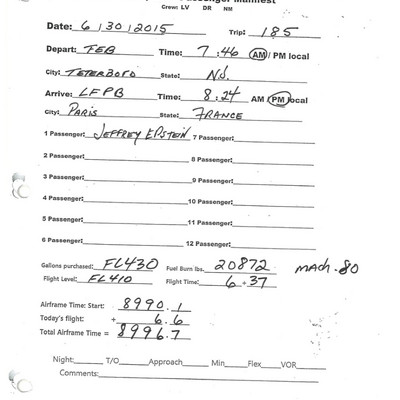 Passenger Manifest
Crew: LV DR NM
Date: 6/30/2015 Trip: 185
Depart: TEB Time: 7:46 AM / PM local
City: TETERBORO State: NJ.
Arrive: LFPB Time: 8:24 AM / PM local
City: PARIS State: FRANCE
1 Passenger: JEFFREY EPSTEIN 7 Passenger:
2 Passenger: 8 Passenger:
3 Passenger: 9 Passenger:
4 Passenger: 10 Passenger:
5 Passenger: 11 Passenger:
6 Passenger: 12 Passenger:
Gallons purchased: FL430 Fuel Burn lbs. 20872 MACH .80
Flight Level: FL410 Flight Time: 6+37
Airframe Time: Start: 8990.1
Today's flight: + 6.6
Total Airframe Time = 8996.7
Night: T/O Approach Min Flex VOR
Comments: